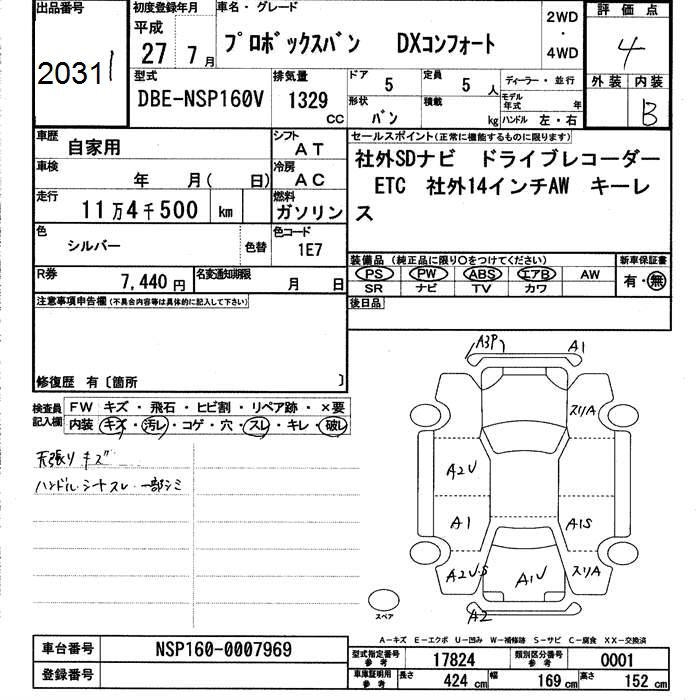 出品番号
20311
初度登録年月
平成
27 7月
車名・グレード
プロボックスバン DXコンフォート
2WD
・
4WD
評価点
4
外装 内装
B
型式
DBE-NSP160V
排気量
1329
CC
ドア
5
定員
5人
ディーラー・並行
形状
バン
積載
kg
モデル年式 年
ハンドル 左・右
車歴
自家用
シフト
AT
セールスポイント(正常に機能するものに限ります)
社外SDナビ ドライブレコーダー
ETC 社外14インチAW キーレ
ス
車検
年 月( 日)
冷房
AC
走行
11万4千500 km
燃料
ガソリン
色
シルバー
色替
色コード
1E7
装備品(純正品に限り○をつけてください)
PS PW ABS エアB AW
SR ナビ TV カワ
新車保証書
有・無
R券
7,440円
名変通知期限
月 日
後日品
注意事項申告欄(不具合内容等は具体的に記入して下さい)
修復歴 有〔箇所 〕
検査員
記入欄
FW キズ・飛石・ヒビ割・リペア跡・×要
内装 キズ・汚レ・コゲ・穴・スレ・キレ・破レ
天張りキズ
ハンドル・シートスレ・一部シミ
A3P
A1
スリA
A2U
A1
A1S
A2U.S
A1U
スリA
A2
スペア
A-キズ E-エクボ U-凹み W-補修跡 S-サビ C-腐食 XX-交換済
車台番号
NSP160-0007969
登録番号
型式指定番号
参考
17824
類別区分番号
参考
0001
車庫証明用
参考
長さ
424 cm
幅
169 cm
高さ
152 cm